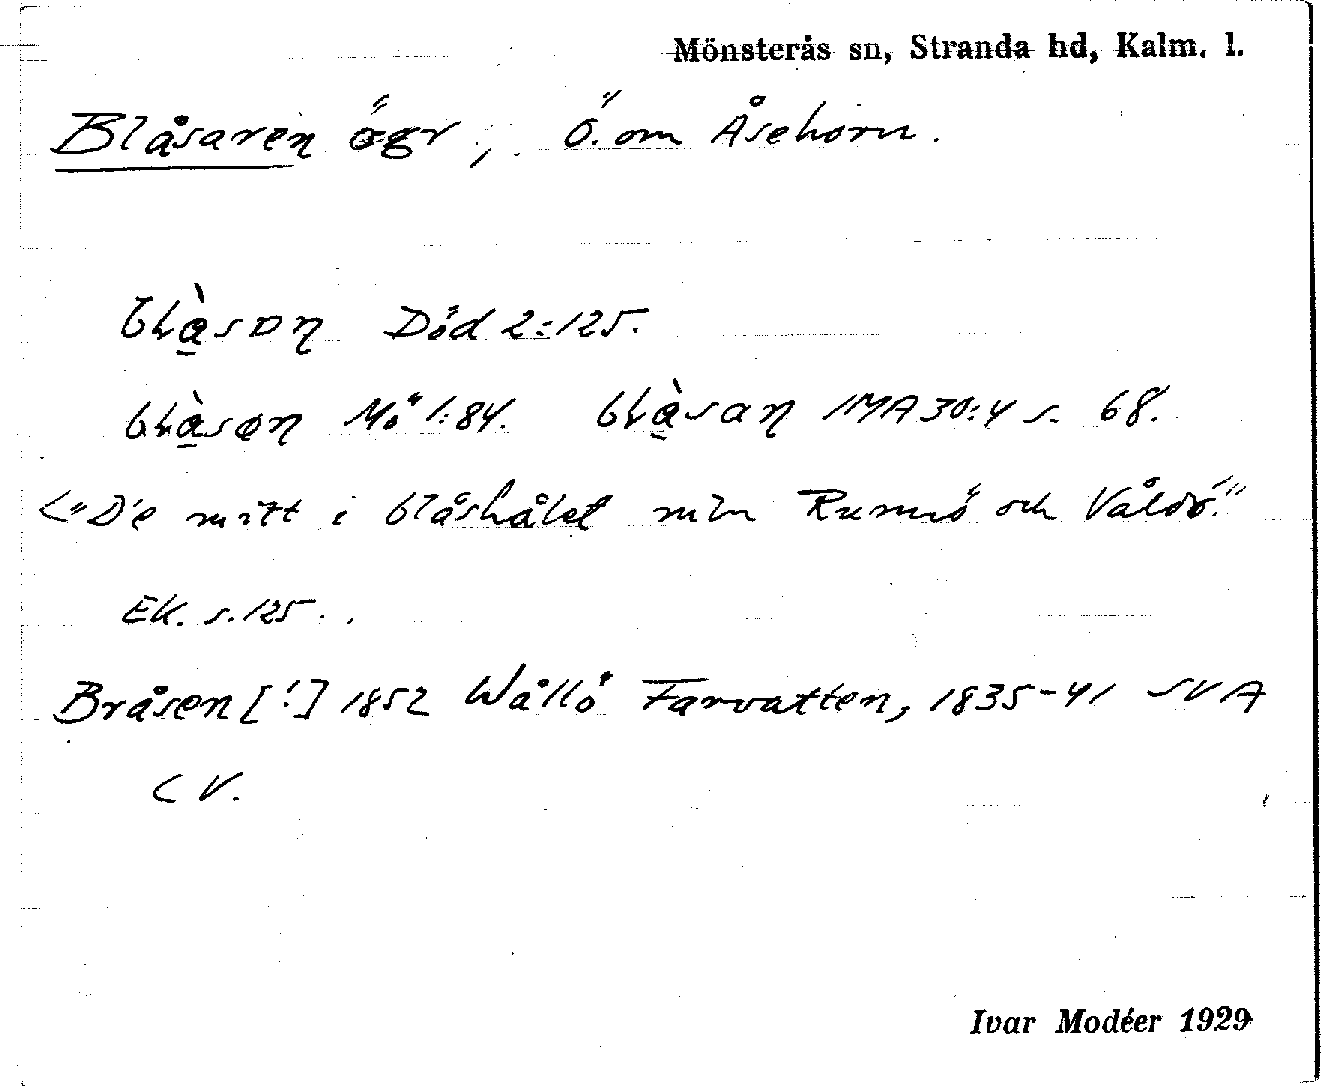 Mönsterås sn, Stranda hd, Kalm. l.
Blåsaren ögr, Ö. om Åsehorn.
Död 2:125.
Mö 1:84. IMA 30:4 s. 68.
<"D'e mitt i blåshålet mln Runnö och Vålö."
EK. s. 125.
Bråsen [!] 1852 Wållö Farvatten, 1835-41 SVA
< V.
Ivar Modéer 1929